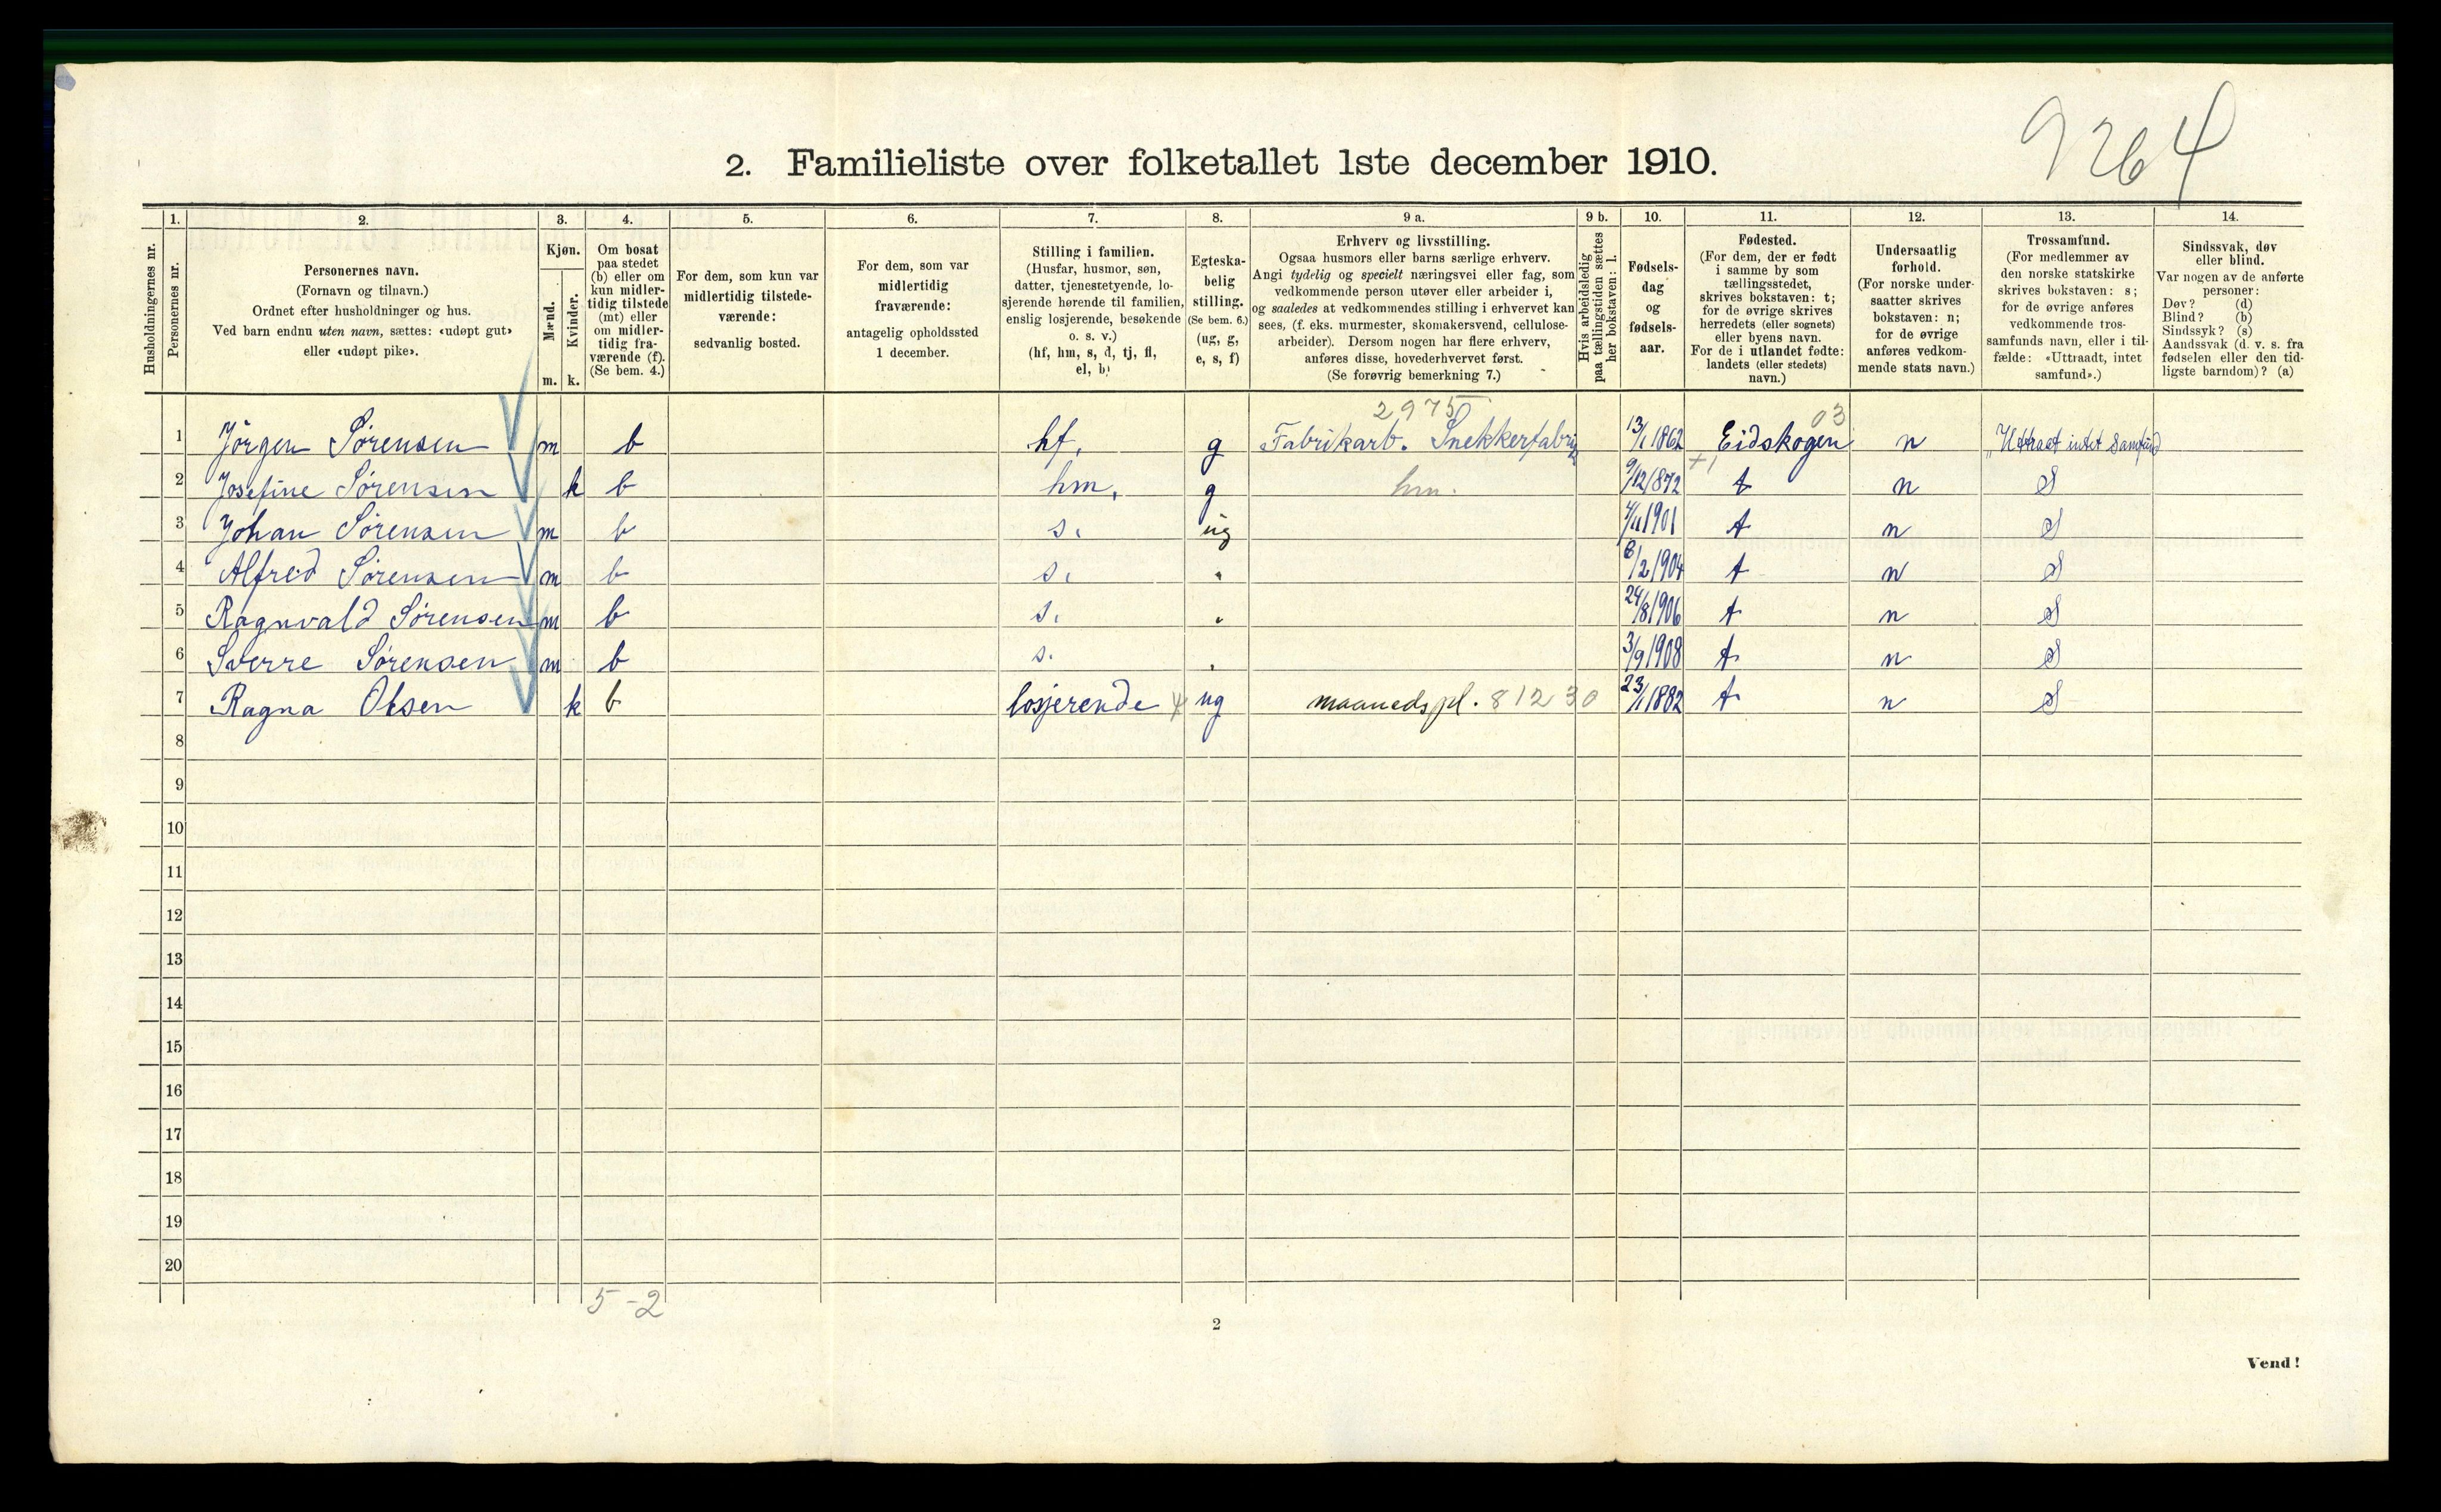 9264
2. Familieliste over folketallet 1ste december 1910.
Husholdningernes nr.
1.
Personernes nr.
2.
Personernes navn.
(Fornavn og tilnavn.)
Ordnet efter husholdninger og hus.
Ved barn endnu uten navn, sættes: «udøpt gut»
eller «udøpt pike».
3.
Kjøn.
Mænd.
Kvinder.
m. k.
4.
Om bosat
paa stedet
(b) eller om
kun midler-
tidig tilstede
(mt) eller
om midler-
tidig fra-
værende (f).
(Se bem. 4.)
5.
For dem, som kun var
midlertidig tilstede-
værende:
sedvanlig bosted.
6.
For dem, som var
midlertidig
fraværende:
antagelig opholdssted
1 december.
7.
Stilling i familien.
(Husfar, husmor, søn,
datter, tjenestetyende, lo-
sjerende hørende til familien,
enslig losjerende, besøkende
o. s. v.)
(hf, hm, s, d, tj, fl,
el, b)
8.
Egteska-
belig
stilling.
(Se bem. 6.)
(ug, g,
e, s, f)
9 a.
Erhverv og livsstilling.
Ogsaa husmors eller barns særlige erhverv.
Angi tydelig og specielt næringsvei eller fag, som
vedkommende person utøver eller arbeider i,
og saaledes at vedkommendes stilling i erhvervet kan
sees, (f. eks. murmester, skomakersvend, cellulose-
arbeider). Dersom nogen har flere erhverv,
anføres disse, hovederhvervet først.
(Se forøvrig bemerkning 7.)
9 b.
Hvis arbeidsledig
paa tællingstiden sættes
her bokstaven: l.
10.
Fødsels-
dag
og
fødsels-
aar.
11.
Fødested.
(For dem, der er født
i samme by som
tællingsstedet,
skrives bokstaven: t;
for de øvrige skrives
herredets (eller sognets)
eller byens navn.
For de i utlandet fødte:
landets (eller stedets)
navn.)
12.
Undersaatlig
forhold.
(For norske under-
saatter skrives
bokstaven: n;
for de øvrige
anføres vedkom-
mende stats navn.)
13.
Trossamfund.
(For medlemmer av
den norske statskirke
skrives bokstaven: s;
for de øvrige anføres
vedkommende tros-
samfunds navn, eller i til-
fælde: «Uttraadt, intet
samfund».)
14.
Sindssvak, døv
eller blind.
Var nogen av de anførte
personer:
Døv? (d)
Blind? (b)
Sindssyk? (s)
Aandssvak (d. v. s. fra
fødselen eller den tid-
ligste barndom)? (a)
2975 03
1 Jörgen Sørensen m b hf. g Fabrikarb. Snekkerfabrik 13/1 1862 Eidskogen n "Uttraat intet Samfund
2 Josefine Sørensen k b hm. g hm. 9/12/872 t n S
3 Johan Sørensen m b s. ug 4/11 1901 t n S
4 Alfred Sørensen m b s. " 8/2 1904 t n S
5 Ragnvald Sørensen m b s. " 24/8 1906 t n S
6 Sverre Sørensen m b s. " 3/9 1908 t n S
7 Ragna Olsen k b losjerende ug maanedspl. 81230 23/1 1882 t n S
8
9
10
11
12
13
14
15
16
17
18
19
20
5-2
2
Vend!